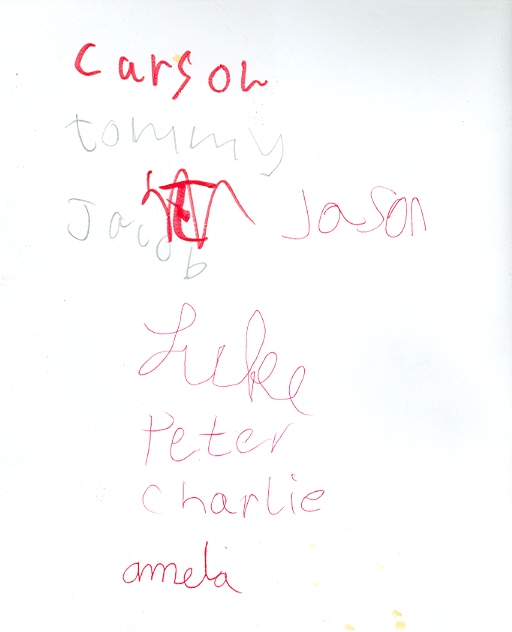 Carson
tommy
Jacob
Jason
Luke
Peter
Charlie
amela